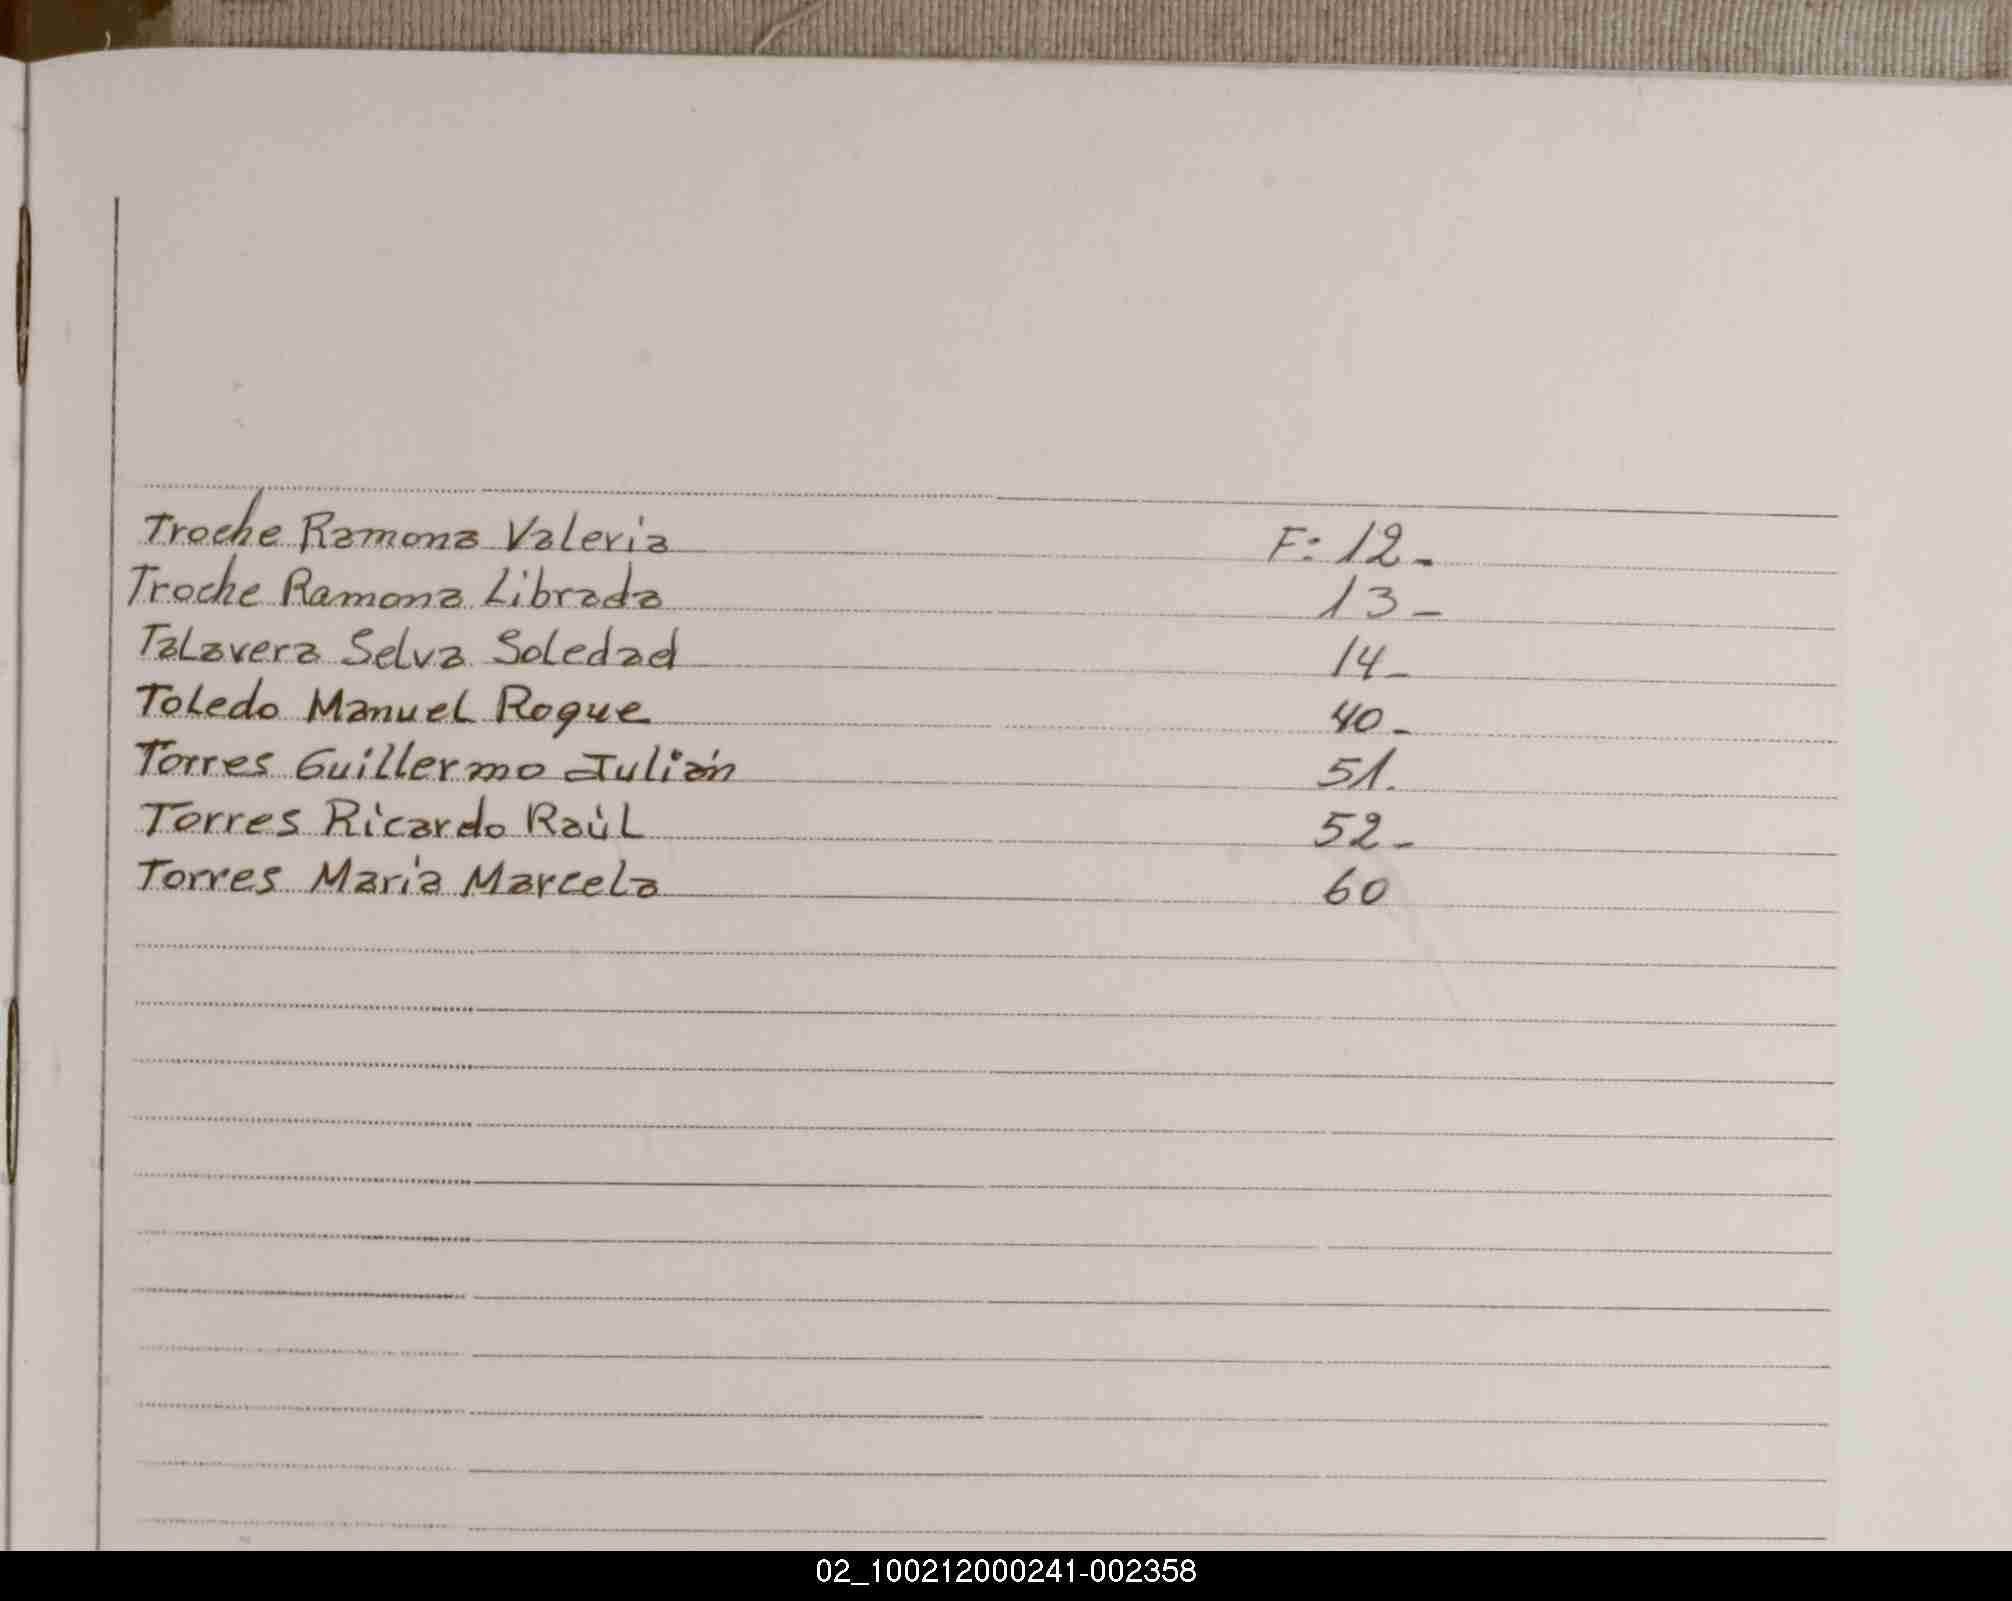 Troche Ramona Valeria F: 12-
Troche Ramona Librada 13-
Talavera Selva Soledad 14-
Toledo Manuel Roque 40-
Torres Guillermo Julián 51.
Torres Ricardo Raúl 52-
Torres María Marcela 60
02_100212000241-002358